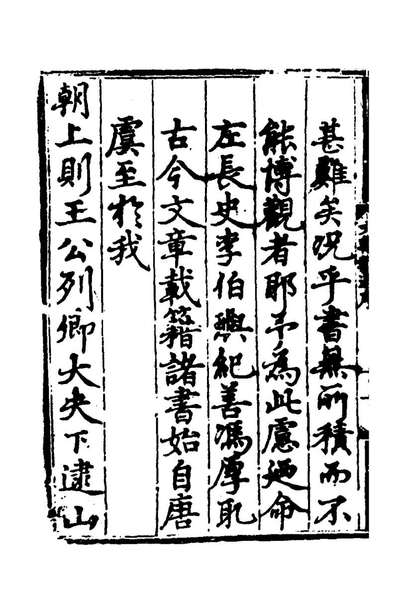 甚難矣况乎書無所積而不
能博觀者耶予為此慮廼命
左長史李伯璵紀善馮厚取
古今文章載籍諸書始自唐
虞至於我
朝上則王公列卿大夫下逮山